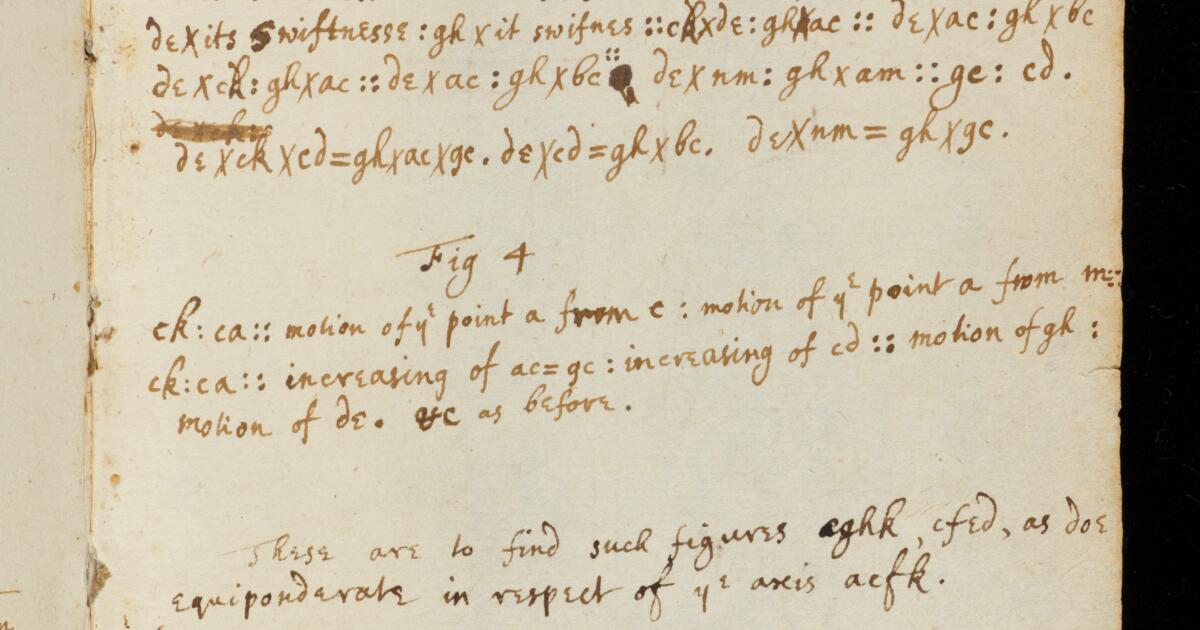 de×its swiftnesse : gh×it swifnes :: ck×de : gh×ac :: de×ac : gh×bc
de×ck : gh×ac :: de×ac : gh×bc :: de×nm : gh×am :: gc : cd.
de×ck×cd=gh×ac×gc. de×cd=gh×bc. de×nm = gh×gc.
Fig 4
ck : ca :: motion of yᵉ point a from c : motion of yᵉ point a from m::
ck : ca :: increasing of ac=gc : increasing of cd :: motion of gh :
motion of de. &c as before.
These are to find such figures cghk, cfed, as doe
equiponderate in respect of yᵉ axis acfk.